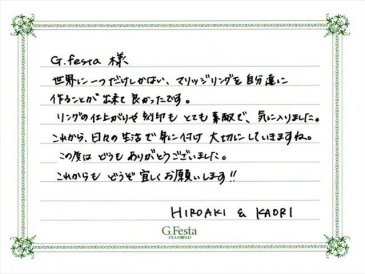 G.festa 様
世界に一つだけしかない、マリッジリングを自分達に
作ることが出来て良かったです。
リングの仕上がりや刻印もとても素敵で、気に入りました。
これから、日々の生活で身に付け大切にしていきますね。
この度はどうもありがとうございました。
これからもどうぞ宜しくお願いします!!
HIROAKI & KAORI
G.Festa
DIAMOND